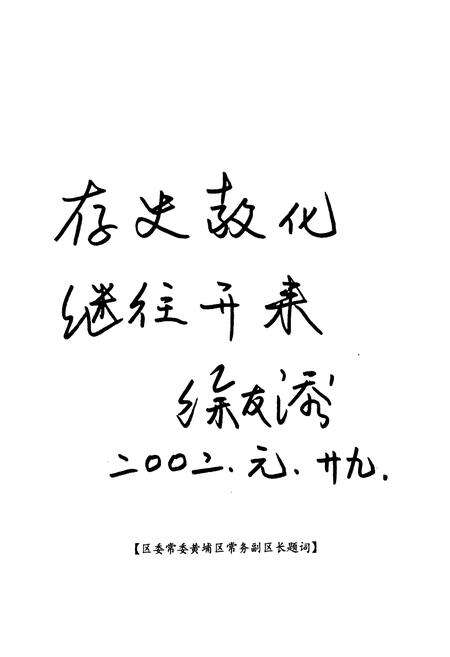 存史教化
继往开来
徐友添
二〇〇二.元.廿九.
【区委常委黄埔区常务副区长题词】